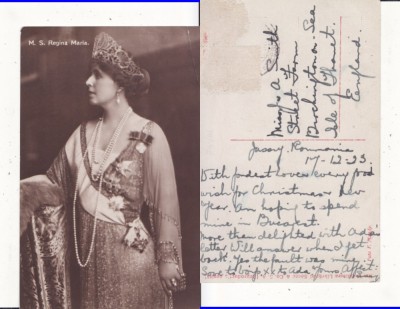 M. S. Regina Maria.
Miss A. Smith
Street Farm
Birchington on Sea
Isle of Thanet.
England.
Jassy. Roumania
17-12-23
With fondest love & every good
wish for Christmas & New
Year. Am hoping to spend
mine in Bucarest.
More than delighted with Adas
letter Will answer when I get
back. Yes the fault was mine
Love to
xx to Ada Yours Affect.